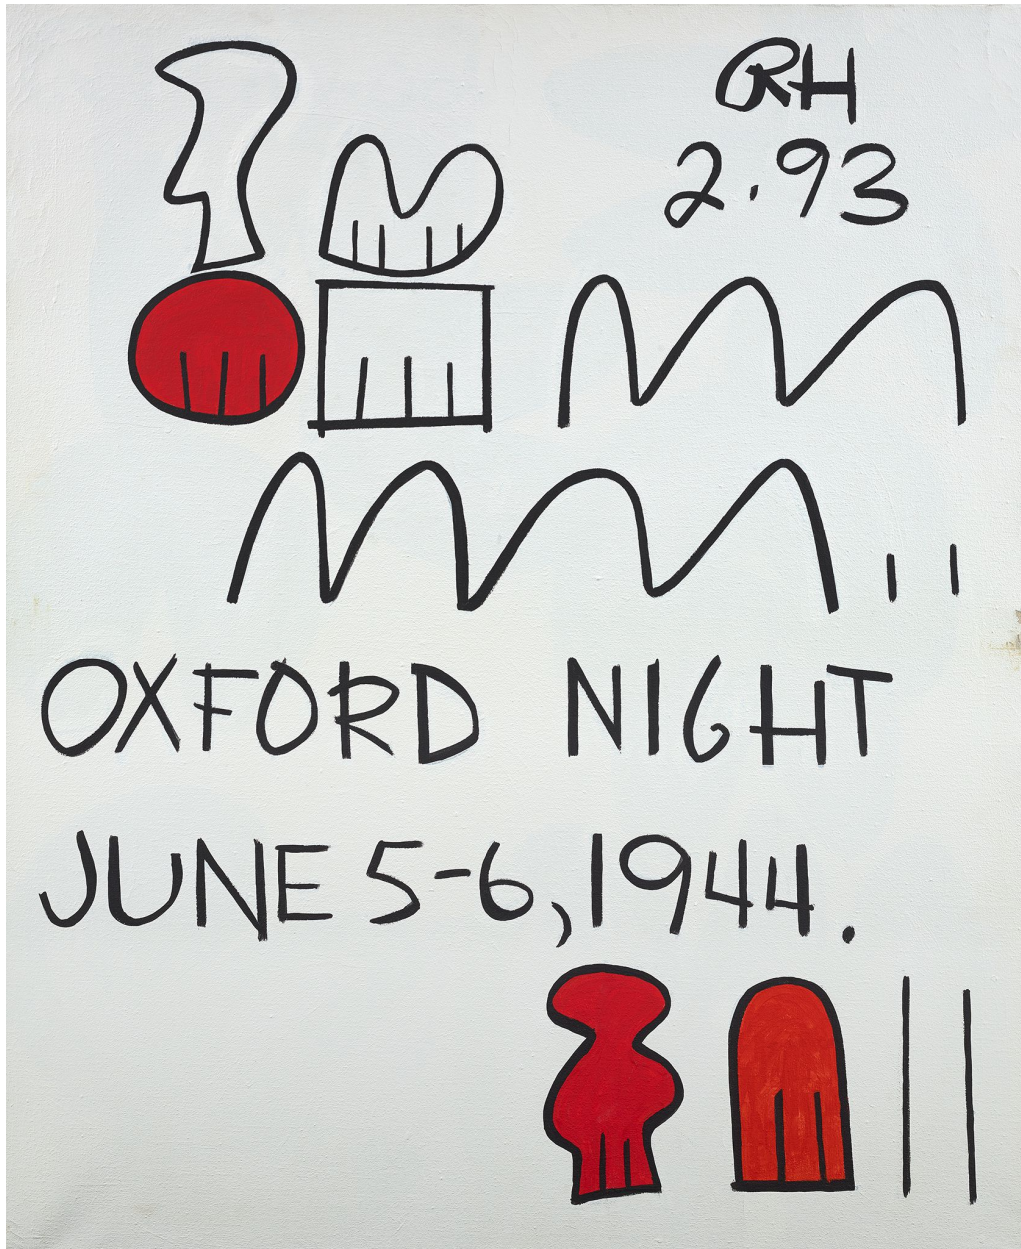 RH
2.93
OXFORD NIGHT
JUNE 5-6, 1944.